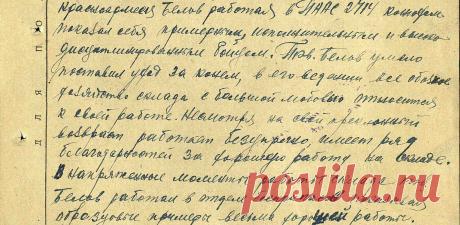 Красноармеец Белов работая в ПААС 2414 коноводом
показал себя примерным, исполнительным и высоко
дисциплинированным бойцом. Тов. Белов умело
поставил уход за конем, в его ведении все обозное
хозяйство склада с большой любовью относится
к своей работе. Несмотря на свой преклонный
возвраст работает безупречно, имеет ряд
благодарностей за хорошую работу на складе.
В напряженные моменты работы склада тов
Белов работал в отделе показывая
образцовые примеры весьма хорошей работы.
для по